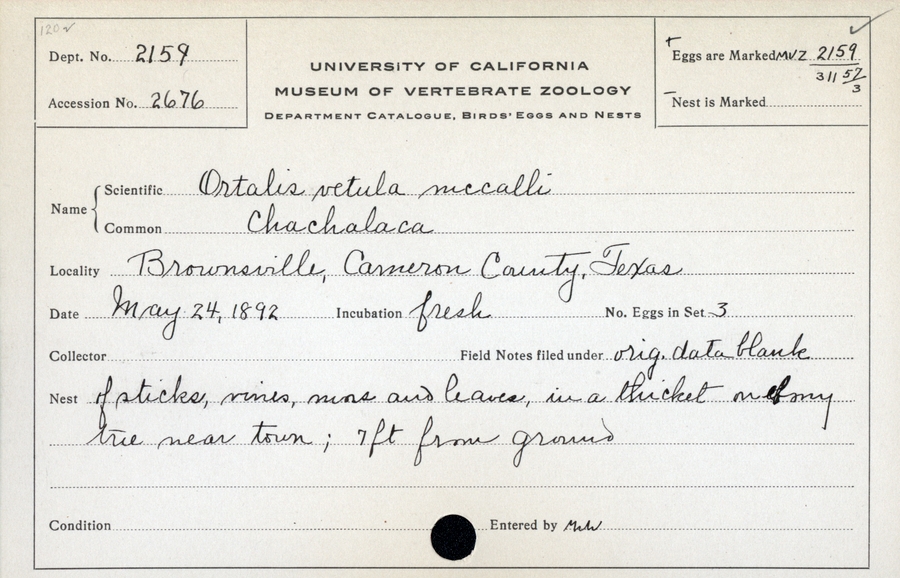 Dept. No. 2159
Accession No. 2676
UNIVERSITY OF CALIFORNIA
MUSEUM OF VERTEBRATE ZOOLOGY
DEPARTMENT CATALOGUE, BIRDS' EGGS AND NESTS
+ Eggs are Marked MVZ 2159
311 57/3
– Nest is Marked
Name
Scientific Ortalis vetula mccalli
Common Chachalaca
Locality Brownsville, Cameron County, Texas
Date May 24, 1892 Incubation fresh No. Eggs in Set 3
Collector Field Notes filed under orig. data blank
Nest of sticks, vines, moss and leaves, in a thicket on
tree near town; 7 ft from ground
Condition Entered by